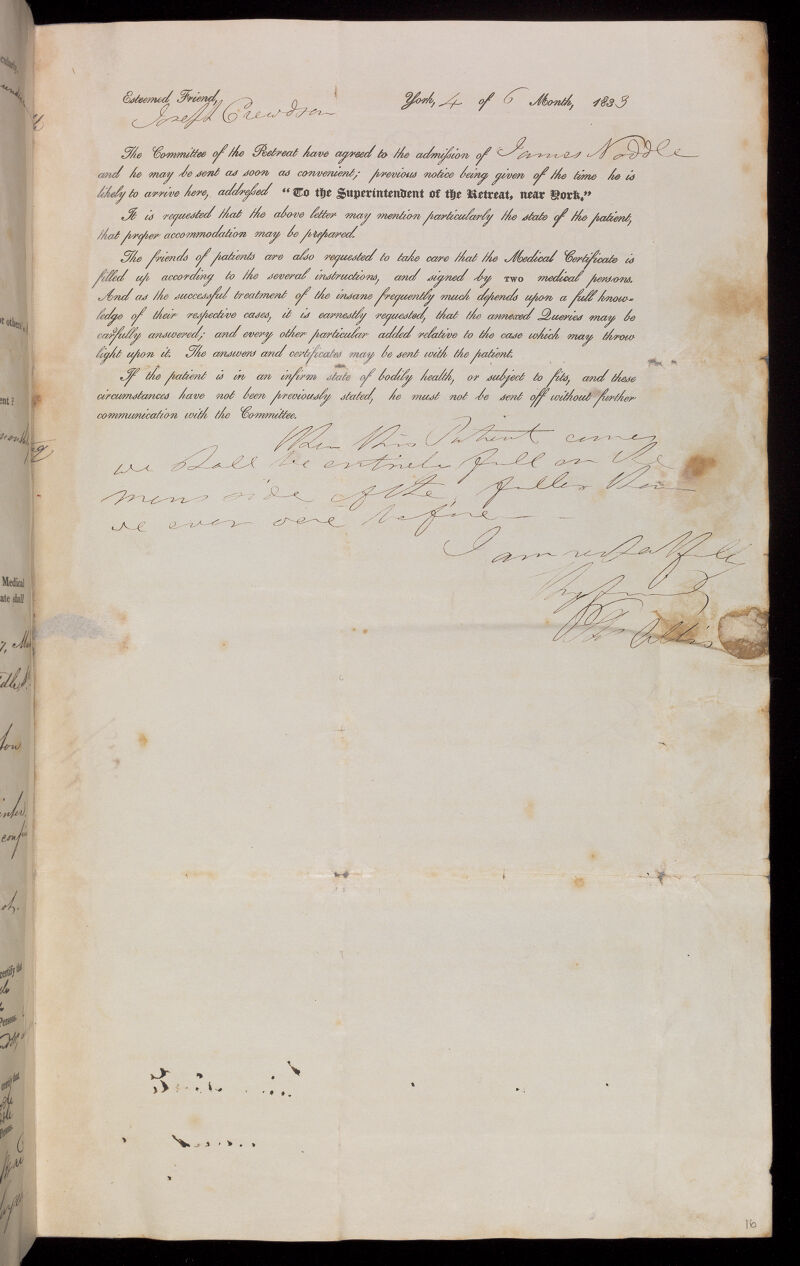 Esteemed Friend, York, 4 of 6 Month, 1833
Joseph Crewdson
The Committee of the Retreat have agreed to the admission of James Noddle
and he may be sent as soon as convenient; previous notice being given of the time he is
likely to arrive here, addressed "To the Superintendent of the Retreat, near York."
It is requested that the above letter may mention particularly the state of the patient,
that proper accommodation may be prepared.
The friends of patients are also requested to take care that the Medical Certificate is
filled up according to the several instructions, and signed by TWO medical persons.
And as the successful treatment of the insane frequently much depends upon a full know-
ledge of their respective cases, it is earnestly requested, that the annexed Queries may be
carefully answered; and every other particular added relative to the case which may throw
light upon it. The answers and certificates may be sent with the patient.
If the patient is in an infirm state of bodily health, or subject to fits, and these
circumstances have not been previously stated, he must not be sent off without further
communication with the Committee.
When this Patient comes
we shall be entirely full on the
mens side of the fuller than
we ever were before
I am respectfully
thy friend
Thos Allis
Medical
ate shall
16